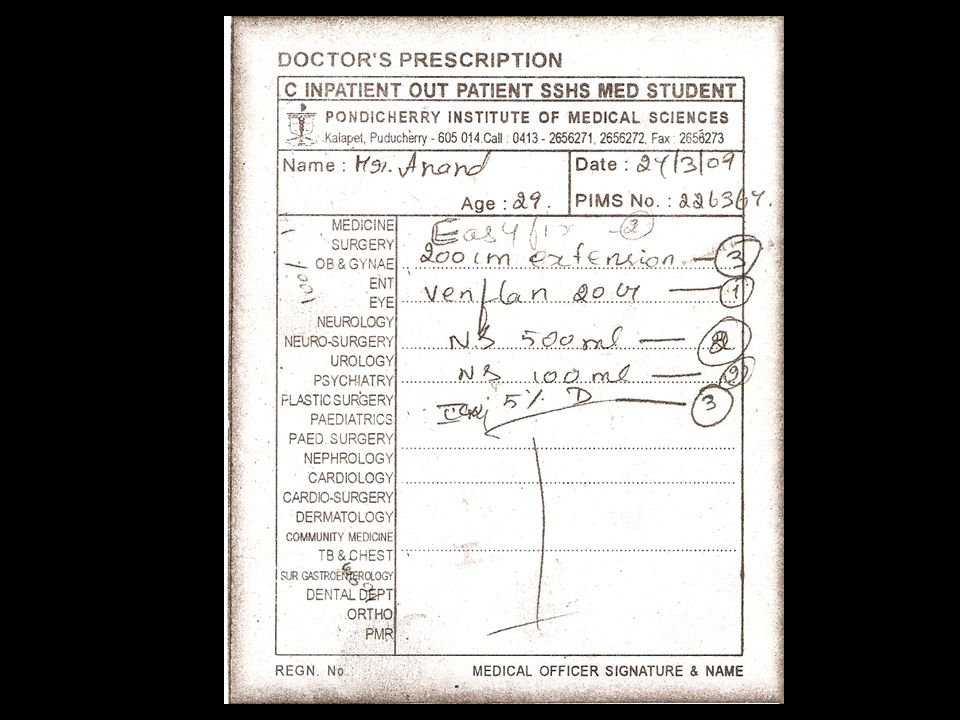 DOCTOR'S PRESCRIPTION
C INPATIENT OUT PATIENT SSHS MED STUDENT
PONDICHERRY INSTITUTE OF MEDICAL SCIENCES
Kalapet, Puducherry - 605 014.Call : 0413 - 2656271, 2656272, Fax : 2656273
Name : Mr. Anand
Date : 24/3/09
Age : 29.
PIMS No. : 226367.
MEDICINE
SURGERY
OB & GYNAE
ENT
EYE
NEUROLOGY
NEURO-SURGERY
UROLOGY
PSYCHIATRY
PLASTIC SURGERY
PAEDIATRICS
PAED. SURGERY
NEPHROLOGY
CARDIOLOGY
CARDIO-SURGERY
DERMATOLOGY
COMMUNITY MEDICINE
TB & CHEST
SUR GASTROENTEROLOGY
DENTAL DEPT
ORTHO
PMR
Easy fix - 2
200 cm extension - 3
Venflan 20 G - 1
NS 500 ml -
NS 100 ml -
5% D - 3
REGN. No.
MEDICAL OFFICER SIGNATURE & NAME